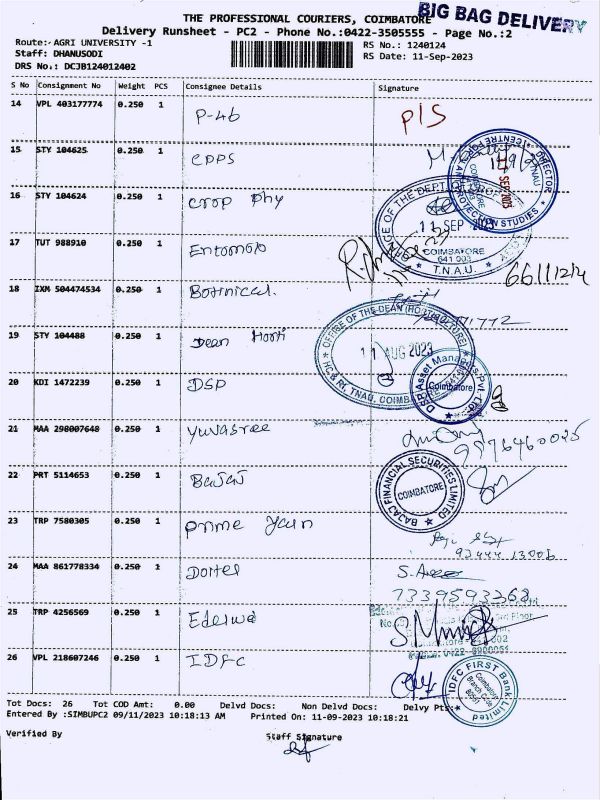 THE PROFESSIONAL COURIERS, COIMBATORE
BIG BAG DELIVERY
Delivery Runsheet - PC2 - Phone No.:0422-3505555 - Page No.:2
Route:- AGRI UNIVERSITY -1
RS No.: 1240124
Staff: DHANUSODI
RS Date: 11-Sep-2023
DRS No.: DCJB124012402
S No Consignment No Weight PCS Consignee Details Signature
14 VPL 403177774 0.250 1 P-46 P/S
15 STY 104625 0.250 1 CPPS
DIRECTOR
CENTRE FOR PLANT PROTECTION STUDIES
TNAU
COIMBATORE
SEP 2023
16 STY 104624 0.250 1 Crop Phy
OFFICE OF THE DEPT. OF
11 SEP 2023
COIMBATORE
641 003
T.N.A.U.
17 TUT 988910 0.250 1 Entomolo
18 IXM 504474534 0.250 1 Botnical.
19 STY 104488 0.250 1 Dean Horti
OFFICE OF THE DEAN (HORTICULTURE)
11 AUG 2023
HC & RI, TNAU, COIMBATORE
20 KDI 1472239 0.250 1 DSP
DSP Asset Managers Pvt. Ltd.
Coimbatore
21 MAA 298007648 0.250 1 Yuvasree
9976460025
22 PRT 5114653 0.250 1 Bajaj
BAJAJ FINANCIAL SECURITIES LIMITED
COIMBATORE
23 TRP 7580305 0.250 1 Prime
24 MAA 861778334 0.250 1
7339593268
25 TRP 4256569 0.250 1 Edelwe
26 VPL 218607246 0.250 1 IDFC
IDFC FIRST Bank Limited
Coimbatore
Branch Code
Tot Docs: 26 Tot COD Amt: 0.00 Delvd Docs: Non Delvd Docs: Delvy Pts:
Entered By :SIMBUPC2 09/11/2023 10:18:13 AM Printed On: 11-09-2023 10:18:21
Verified By Staff Signature